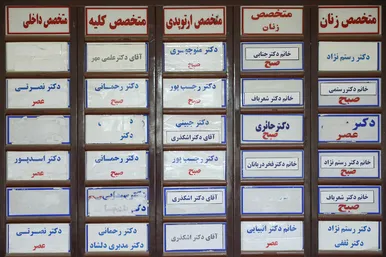 متخصص زنان
متخصص
زنان
متخصص ارتوپدی
متخصص کلیه
متخصص داخلی
دکتر رستم نژاد
خانم دکتر جنابی
صبح
دکتر منوچهری
صبح
آقای دکتر علمی مهر
خانم دکتر رستمی
صبح
خانم دکتر شعرباف
دکتر رجب پور
صبح
دکتر رحمانی
صبح
دکتر نصرتی
عصر
دکتر
عصر
دکتر حائری
صبح
دکتر حبیبی
آقای دکتر اشکذری
دکتر
دکتر رستم نژاد
صبح
خانم دکتر فخر دریانان
دکتر رجب پور
صبح
دکتر رحمانی
صبح
دکتر اسدپور
عصر
خانم دکتر شعرباف
صبح
آقای دکتر اشکذری
دکتر رستم نژاد
دکتر ثقفی
خانم دکتر انبیائی
عصر
آقای دکتر اشکذری
دکتر رحمانی
دکتر مدیری دلشاد
دکتر نصرتی
عصر